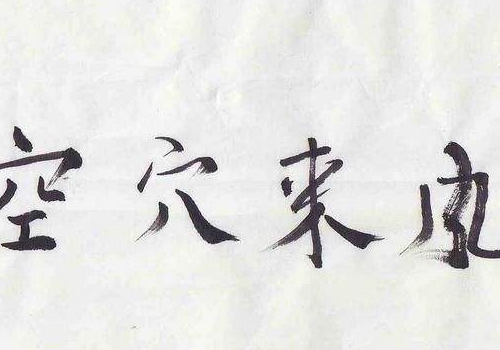 空穴来风